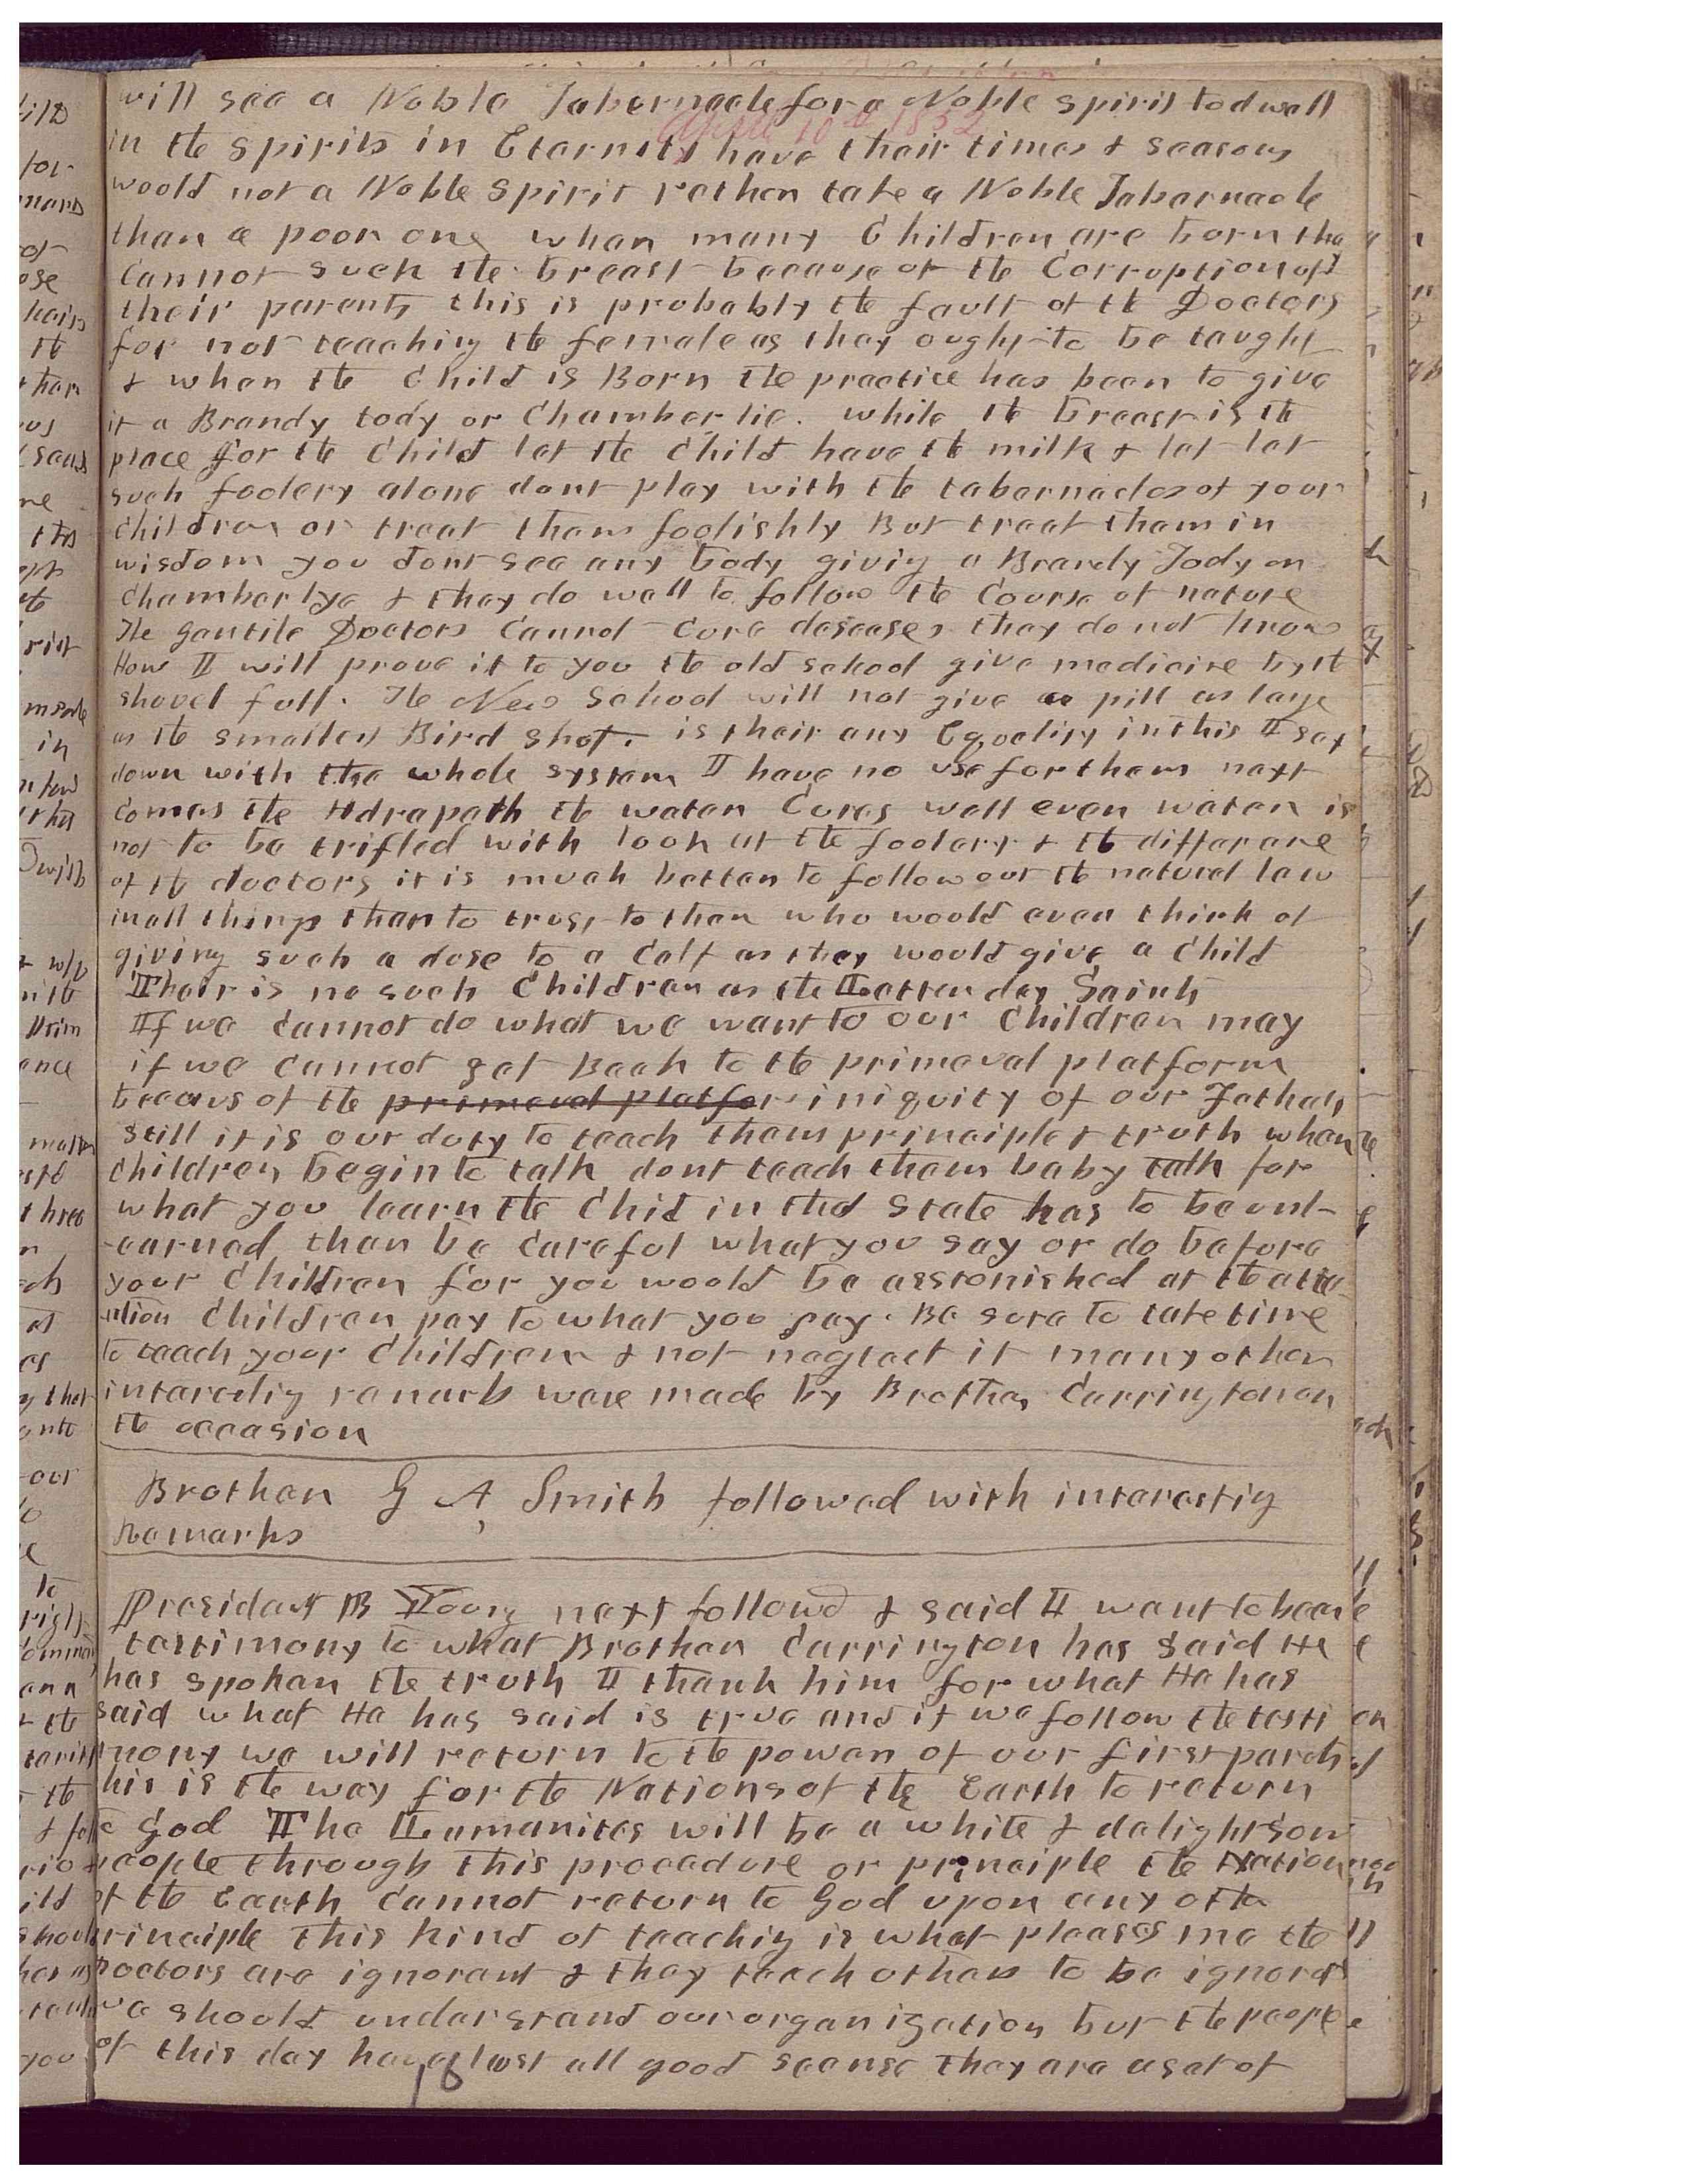 April 10th 1852
will see a Noble Tabernacle for a Noble spirit to dwell
in the spirits in Eternity have their times & seasons
woold not a Noble Spirit rather take a Noble Tabernacle
than a poor one when many Children are born they
Cannot such the breast because of the Corruption of
their parents this is probably the fault of the Doctors
for not teaching the female as they ought to be taught
& when the Child is Born the practice has been to give
it a Brandy tody or Chamber lie. while the breast is the
place for the Child let the Child have the milk & let let
such foolery alone dont play with the tabernacles of your
children or treat them foolishly But treat them in
wisdom you dont see any body giving a Brandy Tody or
Chamber lye & they do well to follow the Course of nature
The gentile Doctors Cannot Cure deseases they do not know
How I will prove it to you the old school give medicine by the
shovel full. The New School will not give a pill as large
as the smallest Bird shot. is their any Eqoelity in this I say
down with the whole system I have no use for them next
comes the Hdrapath the water Cures well even water is
not to be trifled with look at the foolery & the differance
of the doctors it is much better to follow out the natural law
in all things than to trust to them who woold even think of
giving such a dose to a Calf as they would give a Child
Their is no such Children as the Latter day Saints
If we Cannot do what we want to our Children may
if we Cannot get Back to the primeval platform
becaus of the primeval platfor iniquity of our Fathers
still it is our duty to teach them principle & truth when
children begin to talk dont teach them baby talk for
what you learn the Chid in thed state has to be unl-
-earned then be Careful what you say or do before
your Children for you woold be asstonished at the atte-
ntion Children pay to what you say. Be sure to take time
to teach your Children & not neglect it many other
interesting remarks were made by Brother Carrington on
the occasion
Brother G A, Smith followed with interesting
Remarks
President B Young next followd & said I want to bear
testimony to what Brother Carrington has said He
has spoken the truth I thank him for what He has
said what He has said is true and if we follow the testi
mony we will return to the power of our first parents
his is the way for the Nations of the Earth to return
to God The Lamanites will be a white & delightsom
people through this procedure or principle the Nation
of the Earth Cannot return to God upon any othe
principle This kind of teaching is what pleases me the
Doctors are ignorant & they teach others to be ignorant
we should understand our organization but the people
of this day have lost all good seense they are a set of